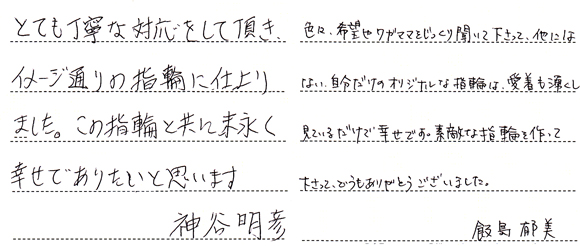 とても丁寧な対応をして頂き
イメージ通りの指輪に仕上り
ました。この指輪と共に末永く
幸せでありたいと思います
神谷明彦
色々、希望やワガママをじっくり聞いて下さって、他には
ない、自分だけのオリジナルな指輪は、愛着も湧くし
見ているだけで幸せです。素敵な指輪を作って
下さって、どうもありがとうございました。
飯島郁美